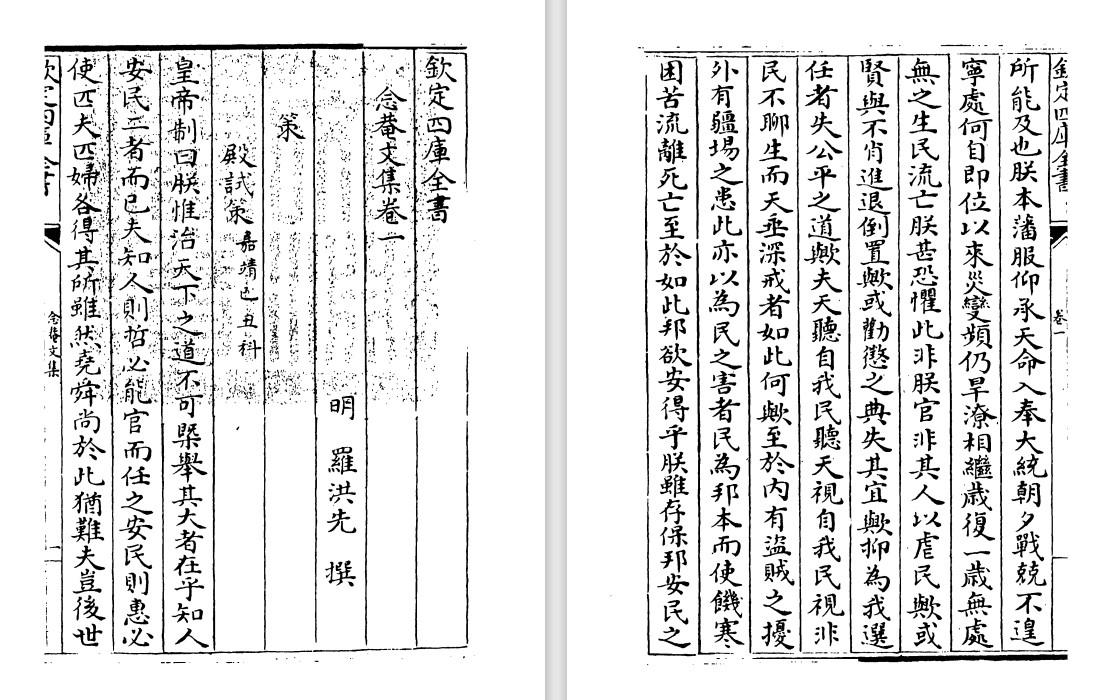 欽定四庫全書
念菴文集卷一
明 羅洪先 撰
策
殿試策嘉靖己丑科
皇帝制曰朕惟治天下之道不可槩舉其大者在乎知人
安民二者而已夫知人則哲必能官而任之安民則惠必
使匹夫匹婦各得其所雖然堯舜尚於此猶難夫豈後世
欽定四庫全書 念菴文集 一
欽定四庫全書 卷一
所能及也朕本藩服仰承天命入奉大統朝夕戰兢不遑
寧處何自即位以來災變頻仍旱潦相繼歲復一歲無處
無之生民流亡朕甚恐懼此非朕官非其人以虐民歟或
賢與不肖進退倒置歟或勸懲之典失其宜歟抑為我選
任者失公平之道歟夫天聽自我民聽天視自我民視非
民不聊生而天垂深戒者如此何歟至於内有盜賊之擾
外有疆場之患此亦以為民之害者民為邦本而使饑寒
困苦流離死亡至於如此邦欲安得乎朕雖存保邦安民之